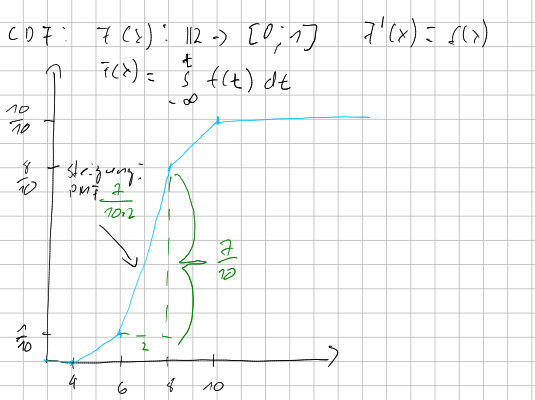 CDF: F(x): ℝ -> [0;1] F'(x) = f(x)
F(x) = ∫_{-∞}^{t} f(t) dt
10/10
8/10
Steigung:
PMF 7/(10·2)
7/10
1/10
2
4 6 8 10